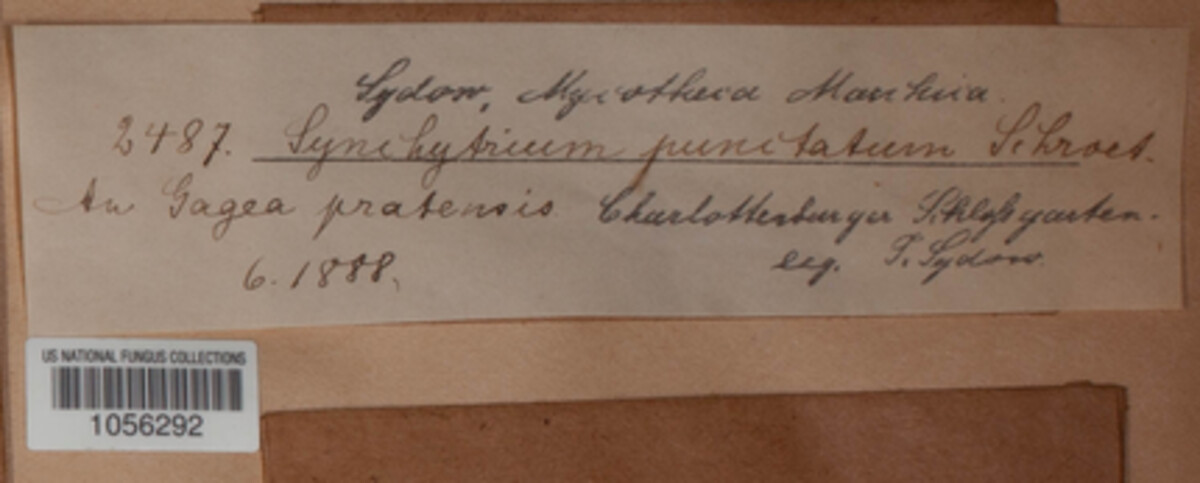 Sydow, Mycotheca Marchica.
2487. Synchytrium punctatum Schroet.
An Gagea pratensis Charlottenburger Schloßgarten.
6. 1888. leg. P. Sydow.
US NATIONAL FUNGUS COLLECTIONS
1056292